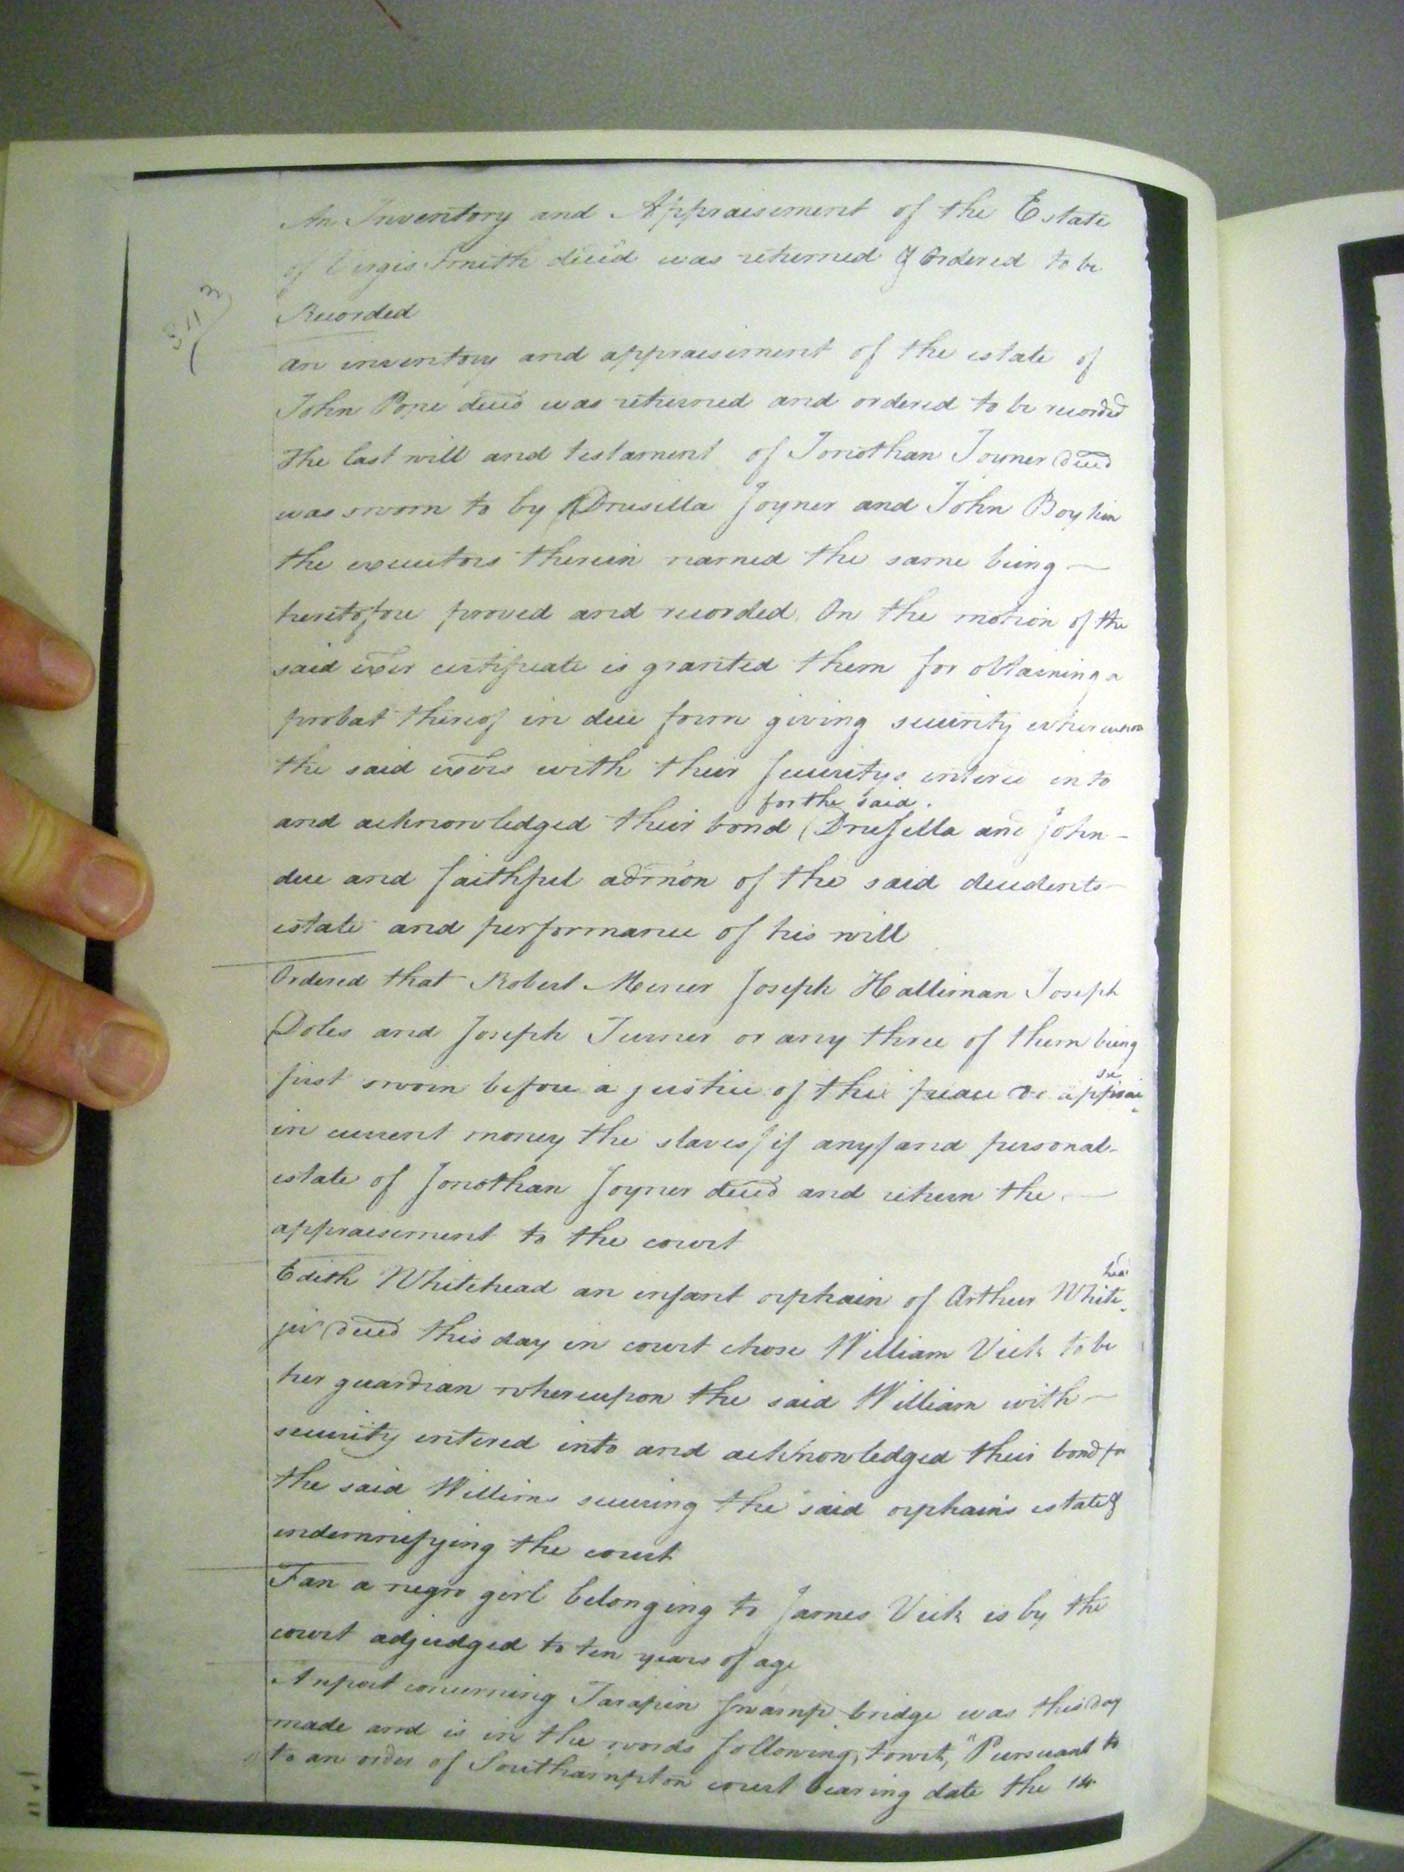 An Inventory and Appraisement of the Estate
of Virgis Smith decd was returned & Ordered to be
Recorded
343
an inventory and appraisement of the estate of
John Pope decd was returned and ordered to be recorded
The last will and testament of Jonothan Joyner decd
was sworn to by Drusilla Joyner and John Boykin
the executors therein named the same being —
heretofore proved and recorded. On the motion of the
said exōr certificate is granted them for obtaining a
probat thereof in due form giving security whereupon
the said exōrs with their securitys entered into
for the said
and acknowledged their bond (Drusella and John —
due and faithful admōn of the said decedents
estate and performance of his will
Ordered that Robert Mercer Joseph Halliman Joseph
Doles and Joseph Turner or any three of them being
se
first sworn before a justice of the peace do apprai
in current money the slaves (if any) and personal
estate of Jonothan Joyner decd and return the —
appraisement to the court
head
Edith Whitehead an infant orphain of Arthur White
jur decd this day in court chose William Vick to be
her guardian whereupon the said William with —
security entered into and acknowledged their bond for
the said Willims securing the said orphain's estate &
indemniefying the court
Fan a negro girl belonging to James Vick is by the
court adjudged to ten years of age
A report concerning Tarapin Swamp bridge was this day
made and is in the words following, towit, "Pursuant to
to an order of Southampton court bearing date the 14